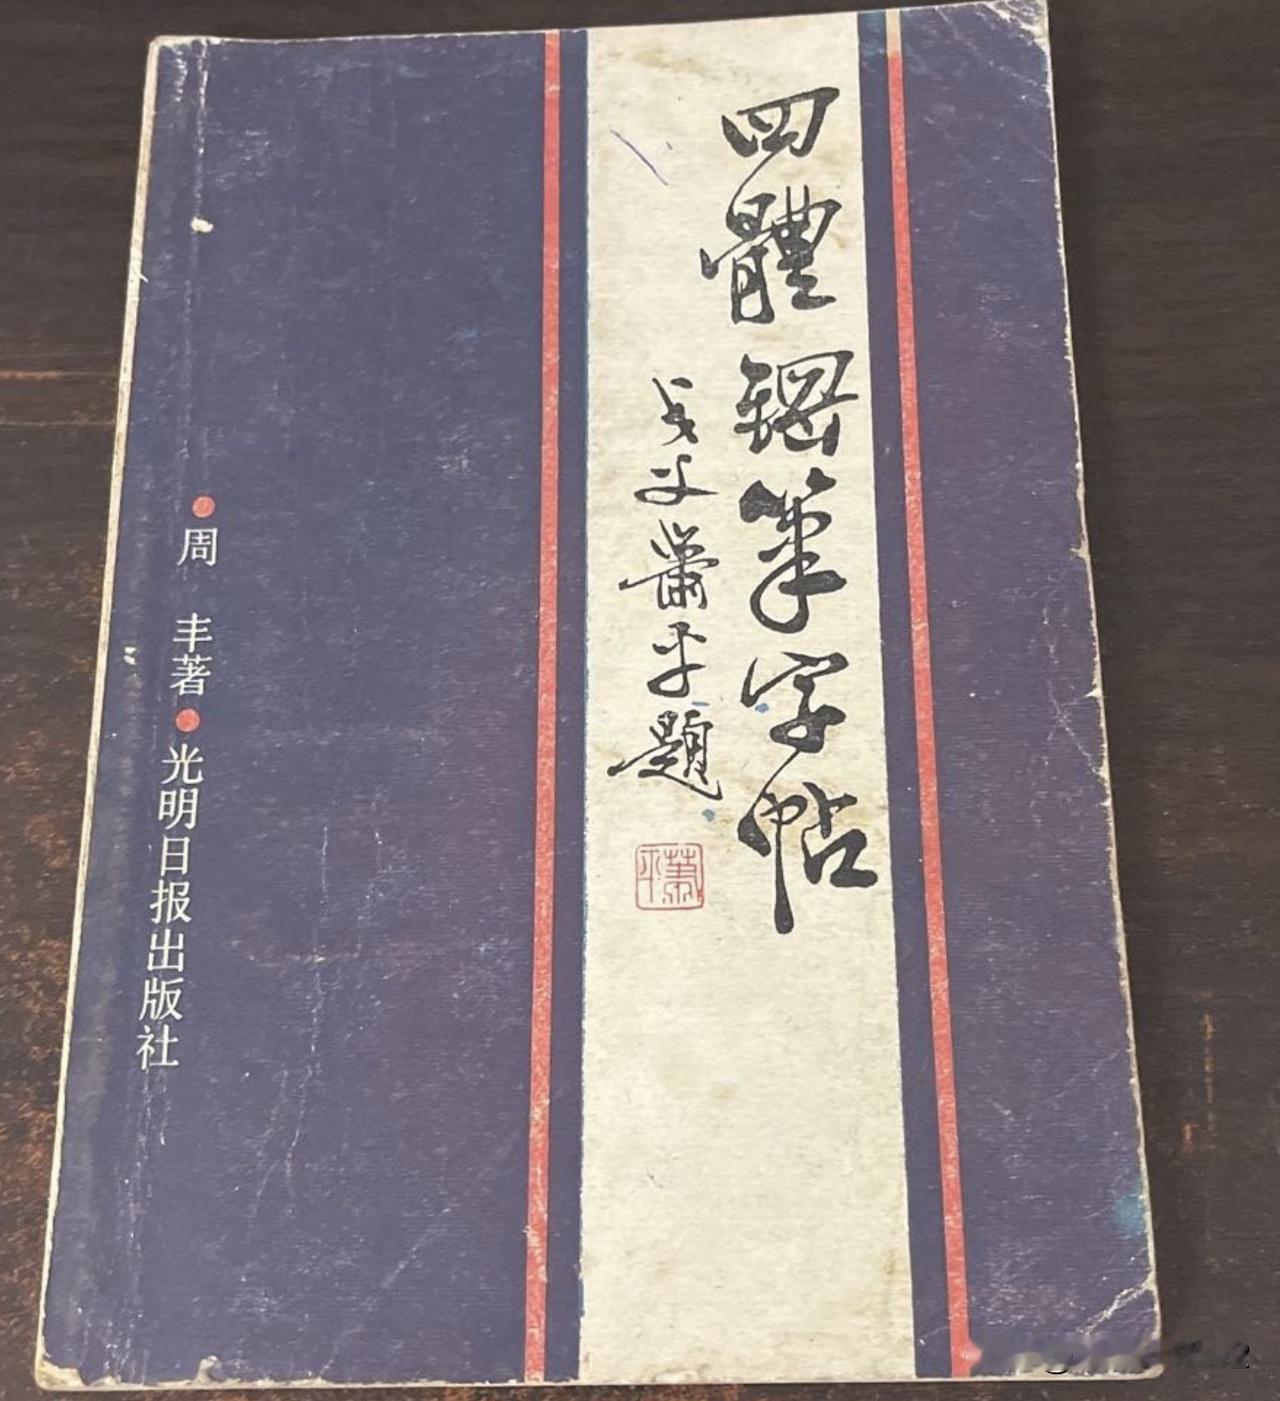 四體鋼筆字帖
戈父蕭平題
蕭平
周 丰著 光明日报出版社